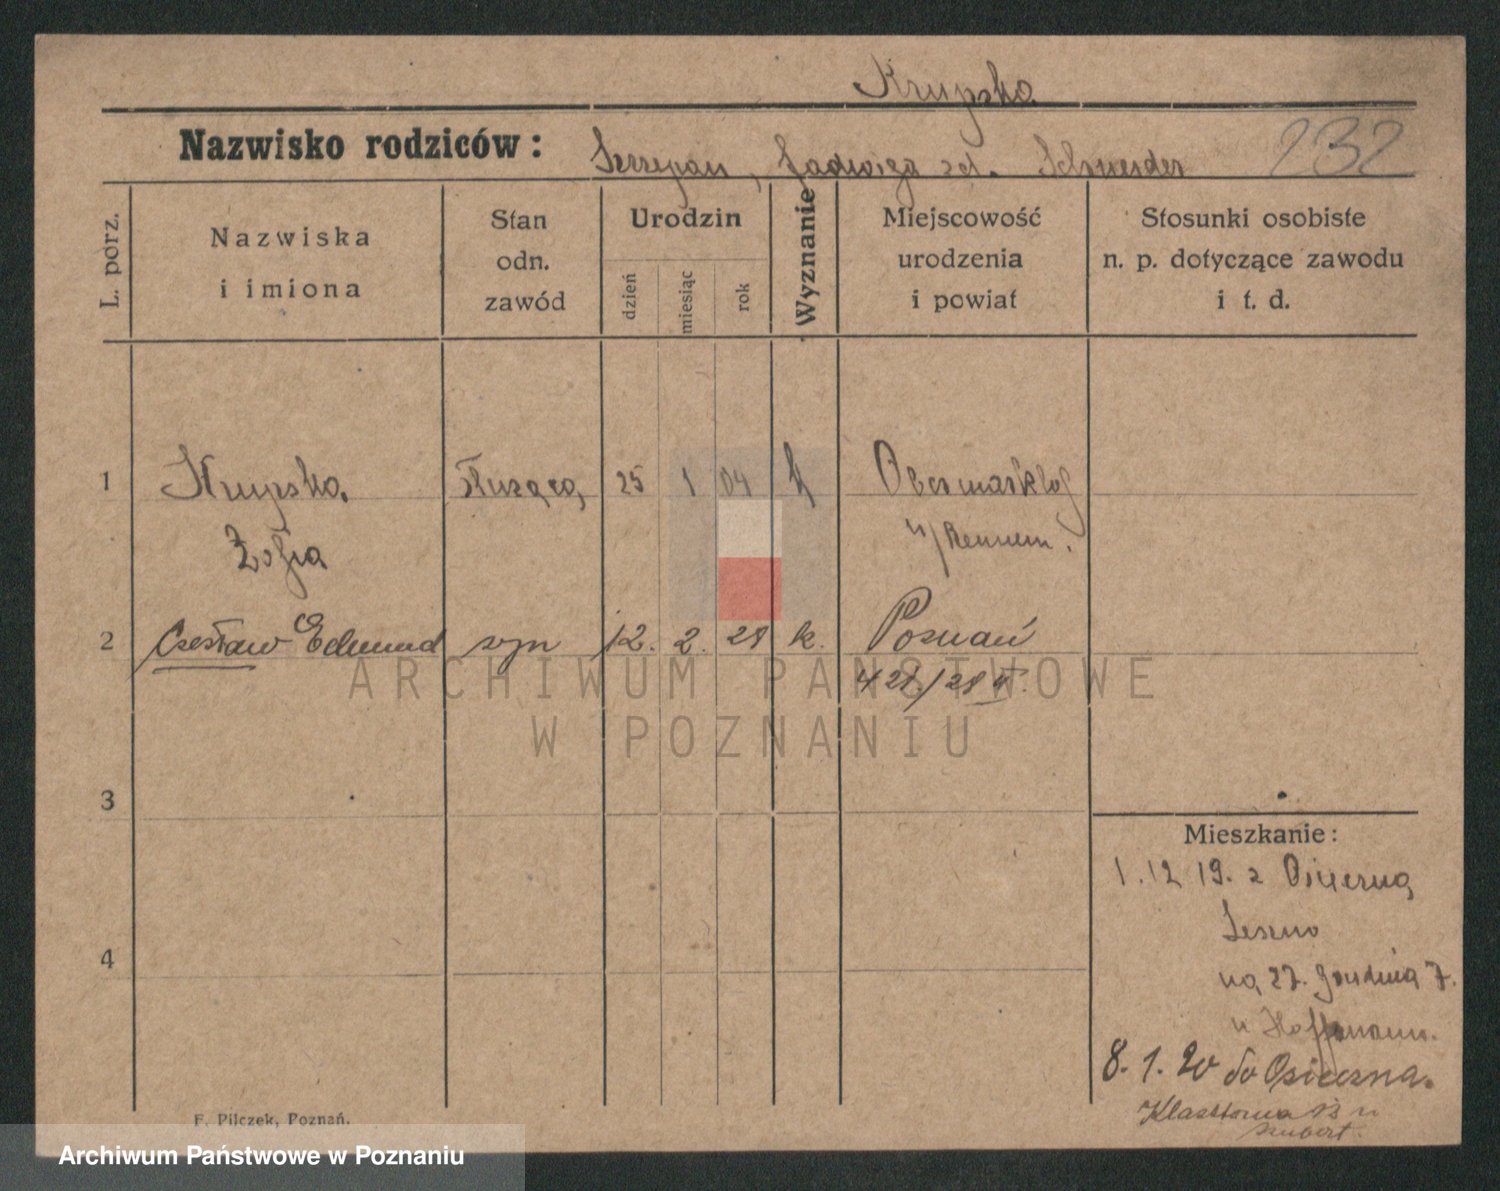 Krupska
Nazwisko rodziców: Szczepan, Jadwiga zd. Schneider 232
L. porz.
Nazwiska i imiona
Stan odn. zawód
Urodzin
dzień
miesiąc
rok
Wyznanie
Miejscowość urodzenia i powiat
Stosunki osobiste n. p. dotyczące zawodu i t. d.
1 Krupska służąca 25 1 04 k Obermarkloh
Zofja n/Renem.
2 Czesław Edmund syn 12. 2. 28 k. Poznań
ARCHIWUM PAŃSTWOWE
W POZNANIU
3
Mieszkanie:
1.12 19. z Osieczna
4 Leszno
na 27. Grudnia 7.
u Hoffmann.
8. 1. 20 do Osieczna.
F. Pilczek, Poznań.
Archiwum Państwowe w Poznaniu